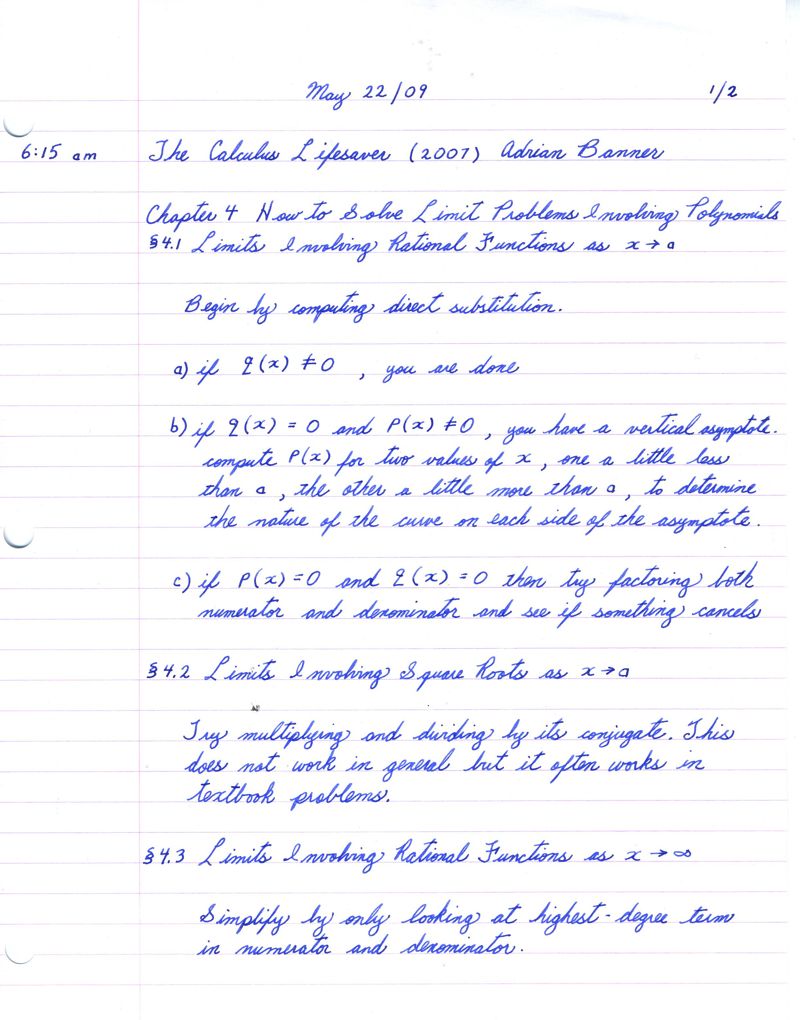 May 22/09 1/2
6:15 am The Calculus Lifesaver (2007) Adrian Banner
Chapter 4 How to Solve Limit Problems Involving Polynomials
§4.1 Limits Involving Rational Functions as x → a
Begin by computing direct substitution.
a) if q(x) ≠ 0 , you are done
b) if q(x) = 0 and P(x) ≠ 0 , you have a vertical asymptote.
compute P(x) for two values of x , one a little less
than a , the other a little more than a , to determine
the nature of the curve on each side of the asymptote.
c) if P(x) = 0 and q(x) = 0 then try factoring both
numerator and denominator and see if something cancels
§4.2 Limits Involving Square Roots as x → a
Try multiplying and dividing by its conjugate. This
does not work in general but it often works in
textbook problems.
§4.3 Limits Involving Rational Functions as x → ∞
Simplify by only looking at highest-degree term
in numerator and denominator.